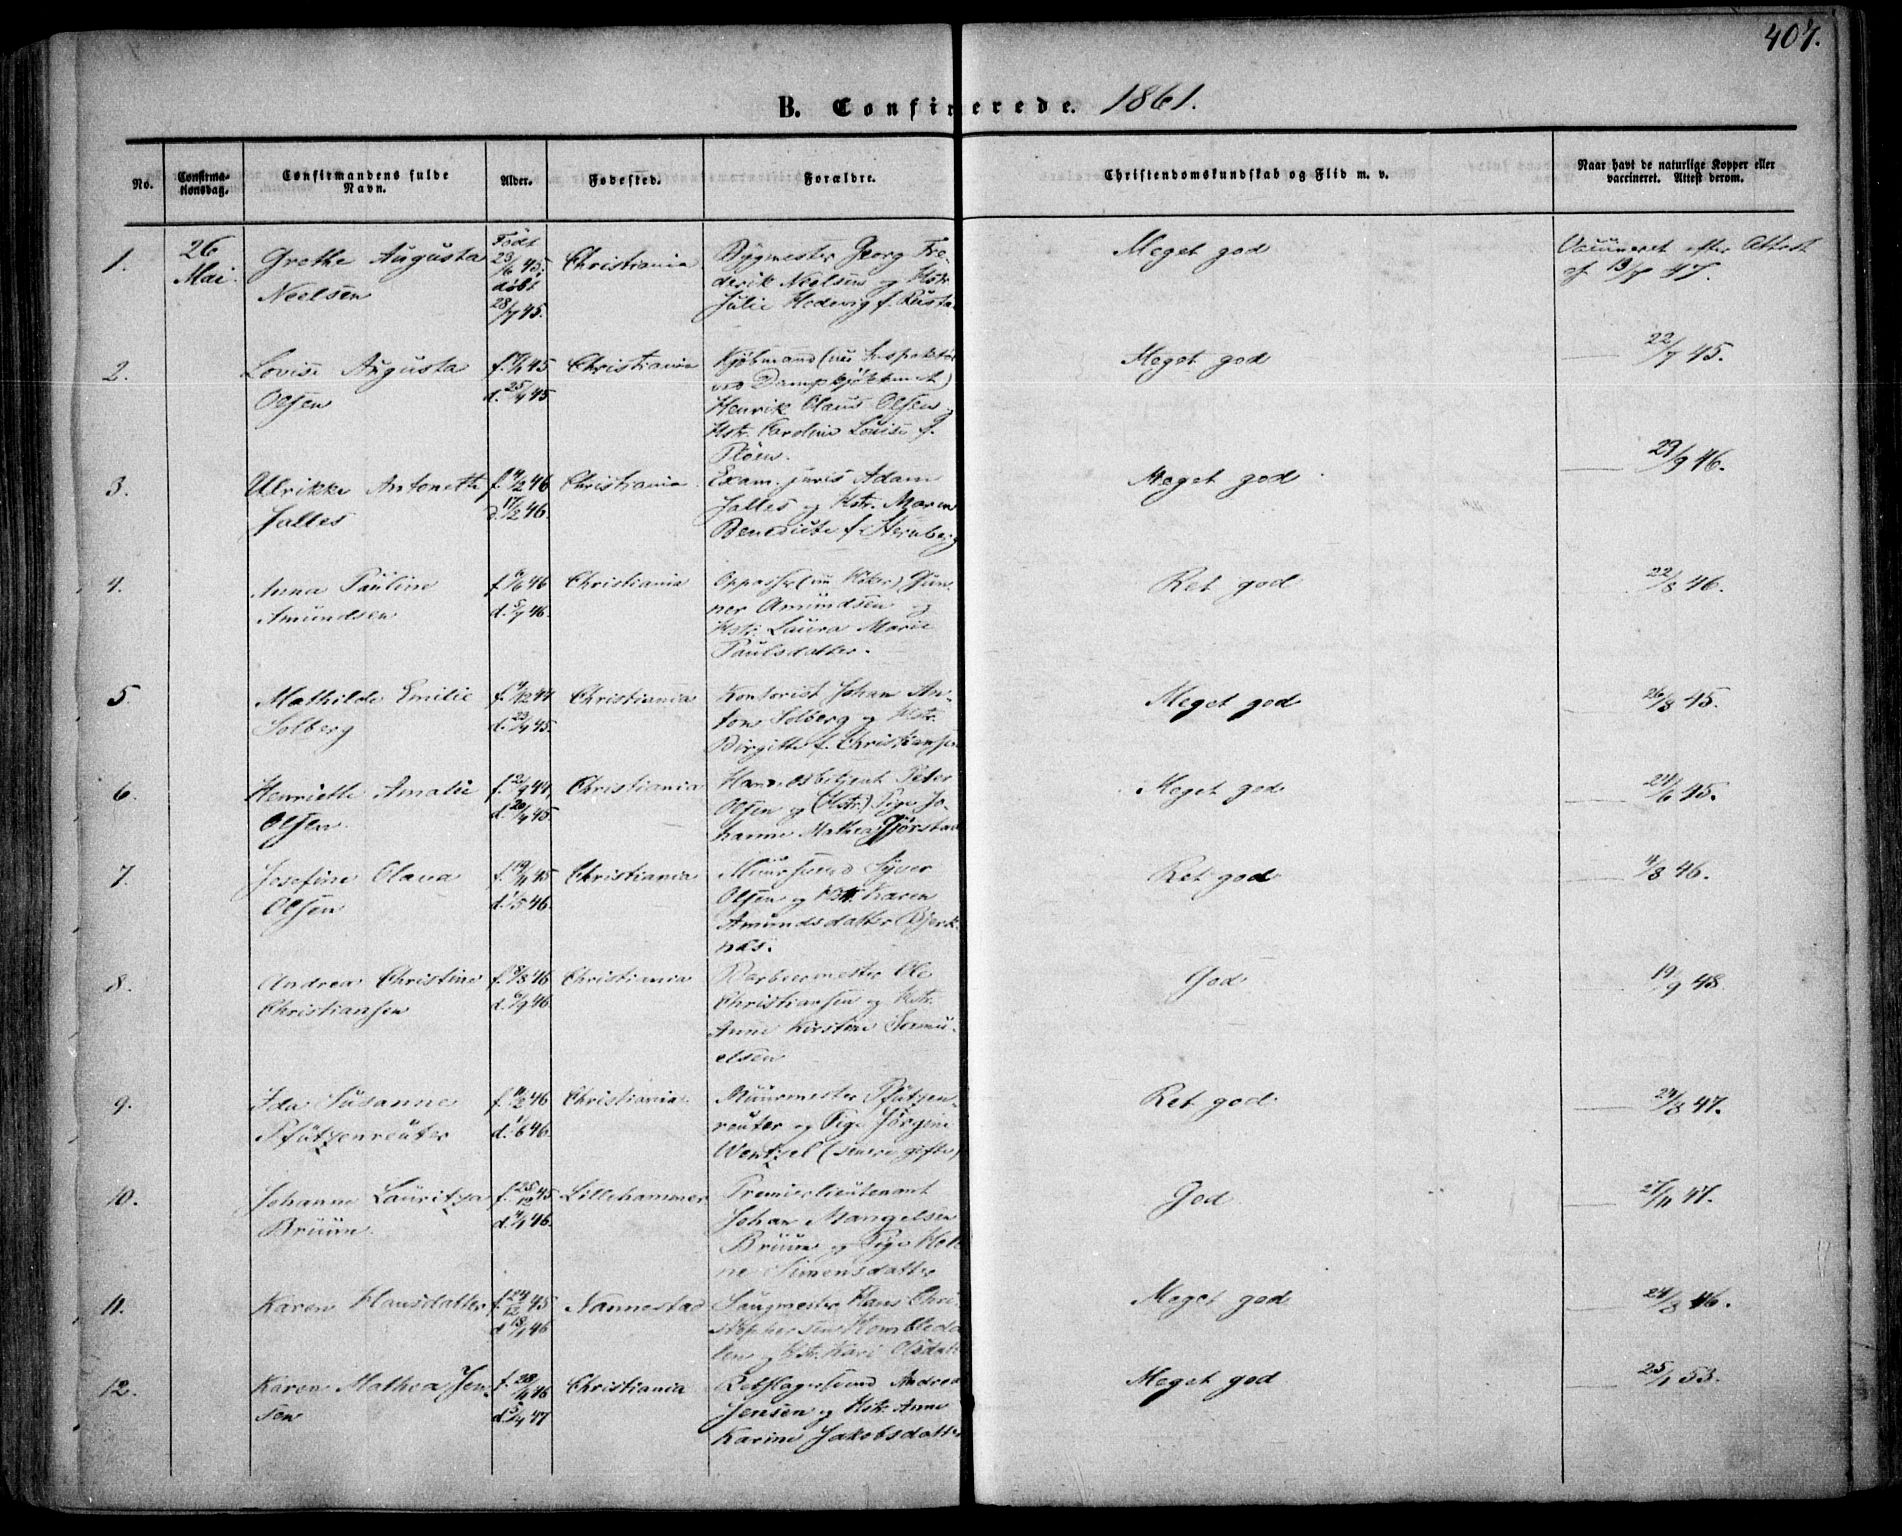 407.
B. Confirmerede. 1861.
No.
Confirma-
tionsdag.
Confirmandens fulde
Navn.
Alder.
Fødested.
Forældre.
Christendomskundskab og Flid m. v.
Naar havt de naturlige Kopper eller
vaccineret. Attest derom.
1.
26
Mai
Grethe Augusta
Neelsen
Født
23/6 45.
døbt
28/7 45.
Christiania
Bygmester Georg Fre-
derik Neelsen og Hstr
Julie Hedevig f.
Meget god
Vaccineret efter Attest
af 13/7 47.
2.
Lovise Augusta
Olsen
45
d. 25/4 45
Christiania
Kjøbmand (nu Inspektør
ved
Henrik Claus Olsen
Hstr. Karoline Louise f.
Meget god
22/7 45.
3.
Ulrikke Antonette
Falles
f. 4/2 46
d. 17/2 46.
Christiania
Exam. juris Adam
Falles og Hstr. Maren
Benedicte f.
Meget god
29/9 46.
4.
Anna Pauline
Amundsen
f. 6/6 46
d. 5/7 46.
Christiania
Oppasser (nu
Amundsen og
Hstr. Laura Marie
Paulsdatter.
Ret god
22/8 46.
5.
Mathilde Emilie
Solberg
f. 4/12 44
d. 23/4 45.
Christiania
Kontorist Johan An-
ton Solberg og Hstr.
Birgitte f. Christiansen
Meget god
26/8 45.
6.
Henriette Amalie
Olsen
44.
d. 20/4 45
Christiania
Handelsbetjent Peter
Olsen og (Hstr.) Pige Jo-
hanne Mathea
Meget god
24/6 45.
7.
Josefine Olava
Olsen
f. 19/11 45
46.
Christiania
Muursvend Syver
Olsen og Hstr. Karen
Amundsdatter Bjerk-
næs.
Ret god
4/8 46.
8.
Andrea Christine
Christiansen
f. 8/8 46
d. 6/9 46
Christiania
Barbeermester Ole
Christiansen og Hstr.
Anne Kirstine Samu-
elsen
God
19/9 48.
9.
Ida Susanne
Pfützenreuter
46
46.
Christiania
Muurmester Pfützen-
reuter og Pige Jørgine
Wentzel (senere gifte)
Ret god
24/8 47.
10.
Johanne Lauritza
Bruun.
f. 25/12 45
d. 4/1 46.
Lillehammer
Premierlieutenant
Johan Mangelsen
Bruun og Pige Hele-
ne Simensdatter
God
27/11 47.
11.
Karen Hansdatter
f. 24/12 45
d. 18/1 46
Nannestad
Saugmester Hans Chri-
stophersen
og Hstr. Kari Olsdatt
Meget god
24/8 46.
12.
Karen Mathea Jen-
sen
46
47
Christiania
Rebslagersvend Andreas
Jensen og Hstr. Anne
Karine Jakobsdatter
Meget god
25/1 53.